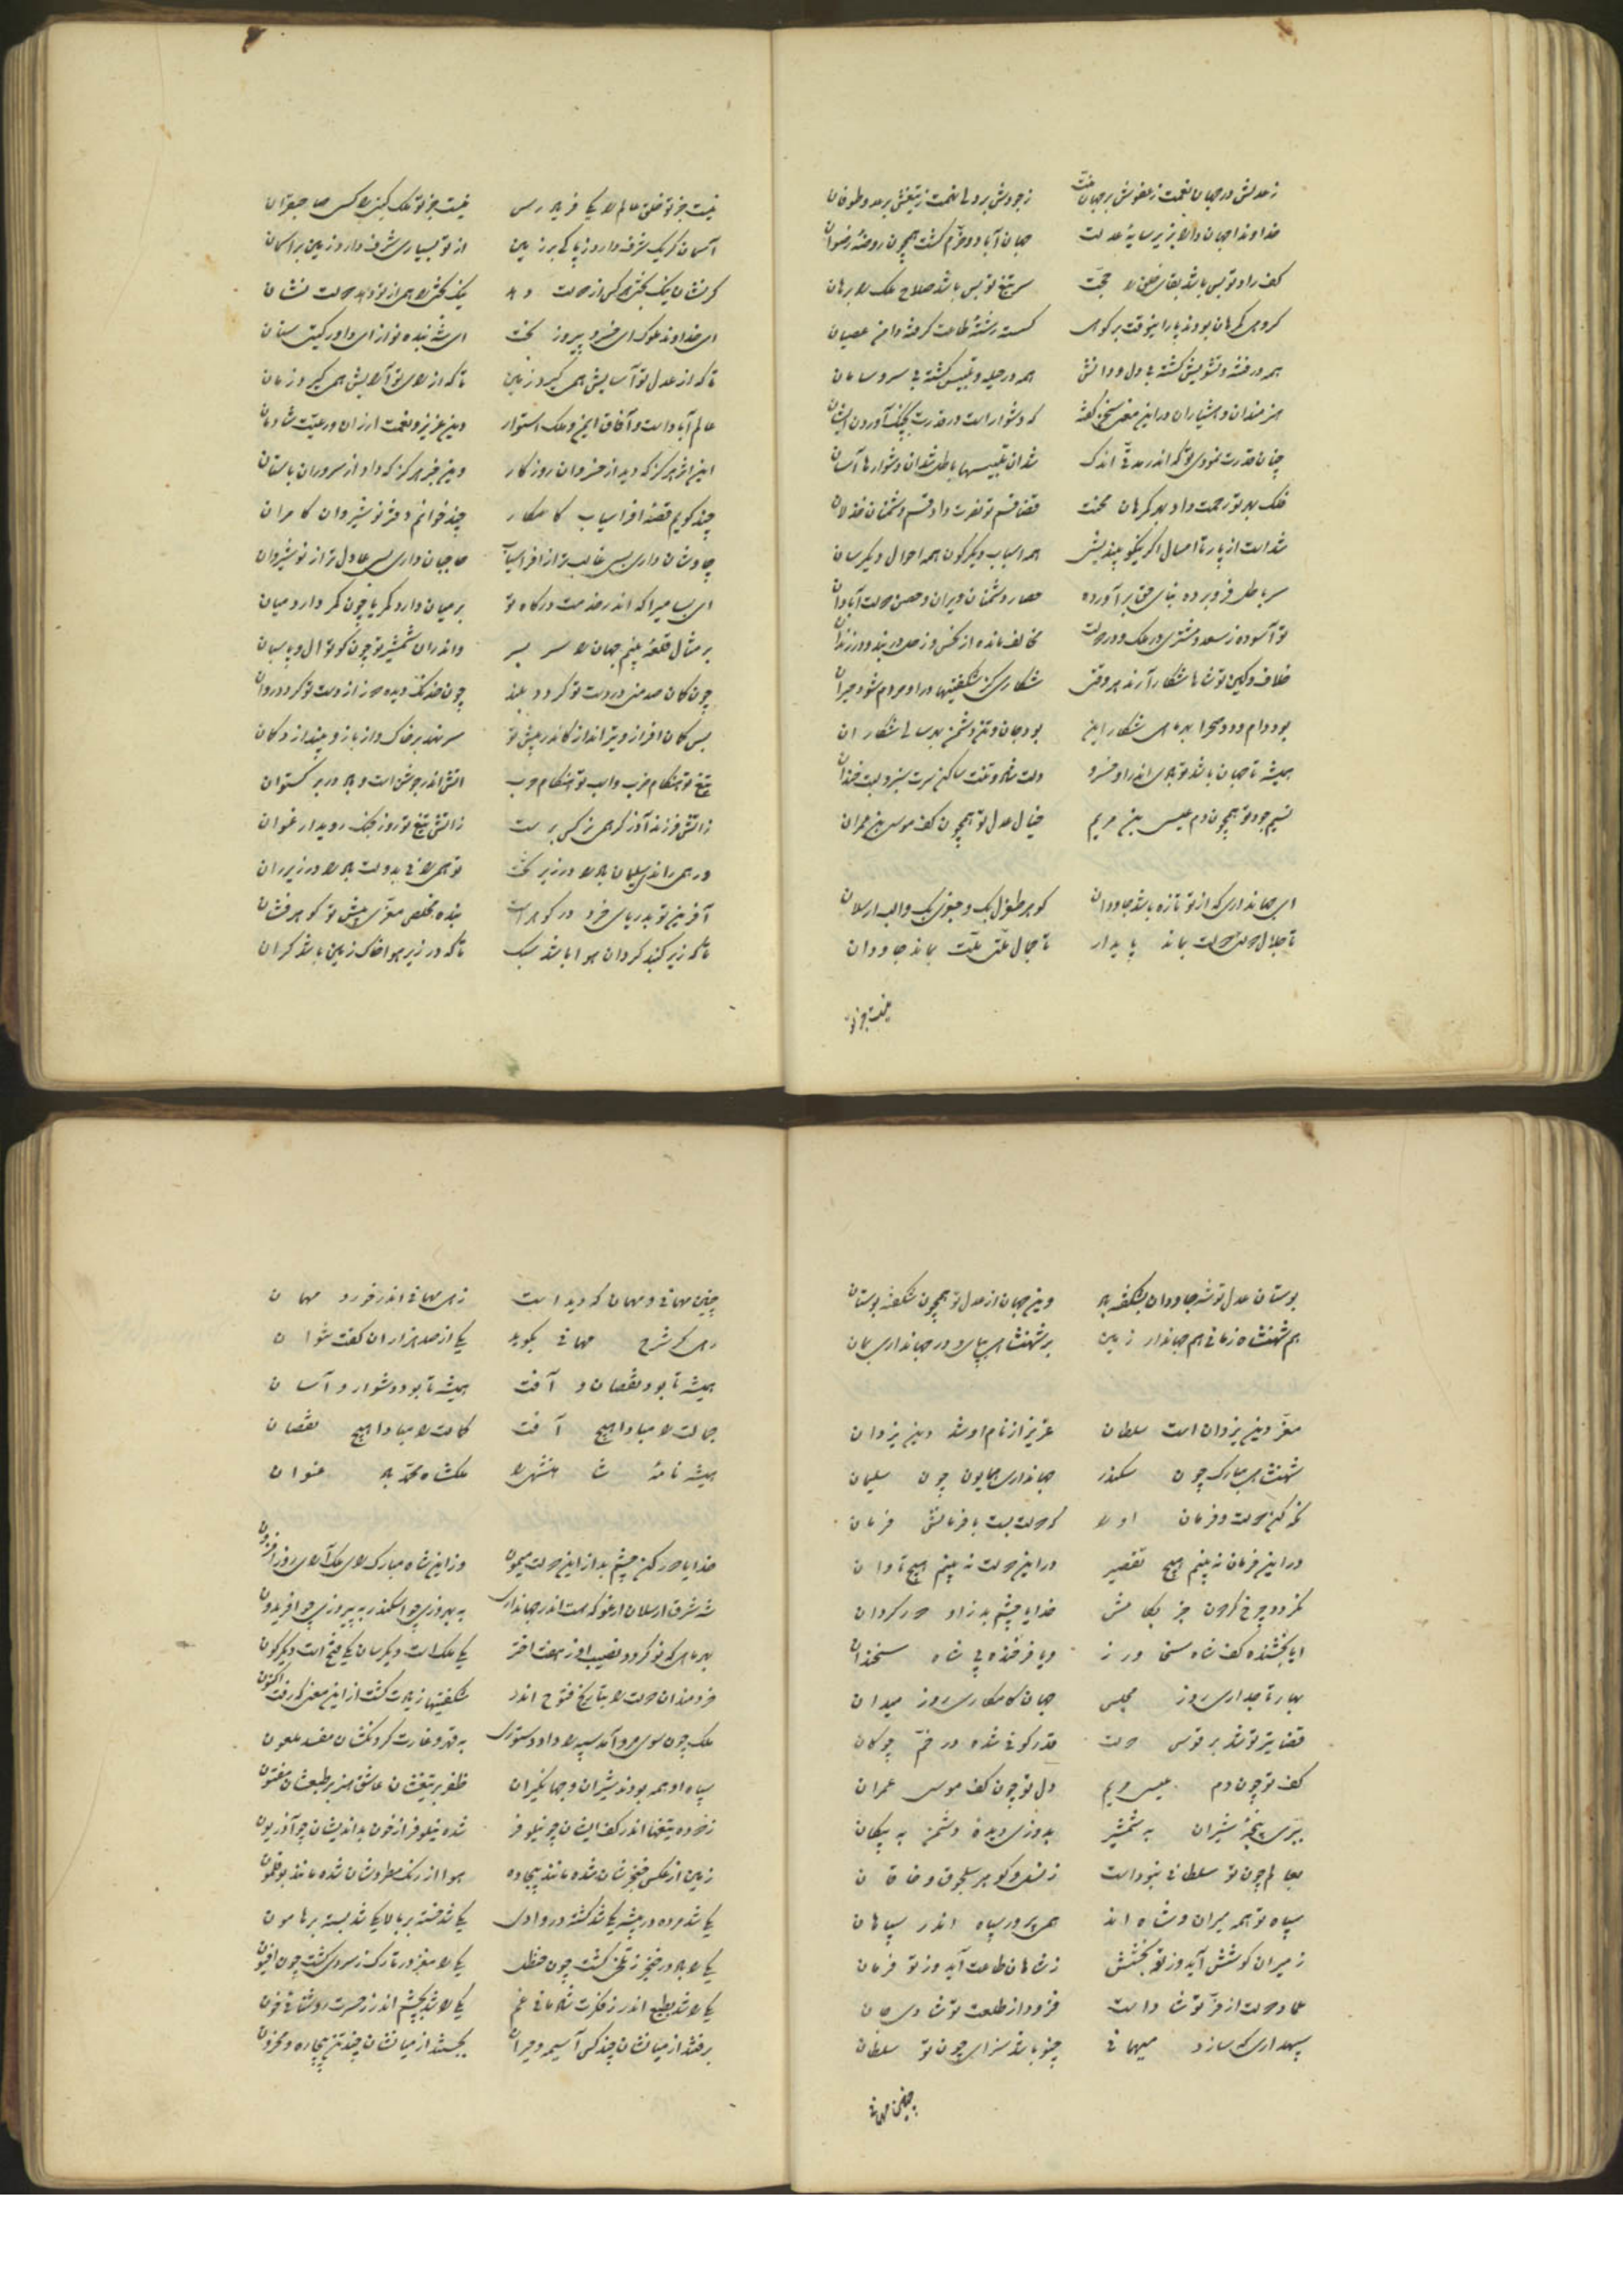 ز عدلش در جهان نعمت ز عفوش بر جهان منت ز جودش بر ولی نعمت ز تیغش بر عدو طوفان
خداوندا جهان والا بزیر سایهٔ عدلت جهان آباد و خرّم گشت همچون روضهٔ رضوان
کف راد تو بس باشد بقای خلق را حجّت سر تیغ تو بس باشد صلاح ملک را برهان
گسسته رشتهٔ طاعت گرفته دامن عصیان
همه در فتنه و تشویش گشته بی دل و دانش همه در حیله و تلبیس گشته بی سر و سامان
هنرمندان و هشیاران در این معنی سخن گفته که دشوار است در قدرت بچنگ آوردن ایشان
چنان قدرت نمودی تو که اندر مدتی اندک شد آن تلبیسها باطل شد آن دشوارها آسان
فلک بهر تو رحمت داد بهر گرهان محنت قضا قسم تو نصرت داد قسم دشمنان خذلان
شد است از پار تا امسال اگر نیکو بیندیش همه اسباب دیگرگون همه احوال دیگرسان
سر باطل فرو برده بنای حق برآورده حصار دشمنان ویران و حصن دولت آبادان
تو آسوده ز سعد مشتری در ملک و در دولت مخالف مانده از نحس زحل در بند و در زندان
خلاف و کین تو شاها شکار آرند هر وقتی شکاری کز شگفتیها در او مردم شود حیران
بود دام و دد صحرا بهر ماهی شکار این بود جان و تن دشمن بهر سالی شکار آن
همیشه تا جهان باشد تو بادی اندر او خسرو دلت شاد و تنت ساکن سرت سبز و لبت خندان
نسیم جود تو همچون دم عیسی بن مریم خیال عدل تو همچون کف موسی بن عمران
ای جهانداری که از تو تازه باشد جاودان گوهر طغرل بک و جغری بک و الب ارسلان
تا جلال دولت دولت بماند پایدار تا جمال ملّتی ملّت بماند جاودان
نیست جز تو
نیست جز تو خلق عالم را یکی فریادرس نیست جز تو ملک گیتی را کس صاحبقران
آسمان گر یک شرف دارد ز پاکی بر زمین از تو بسیاری شرف دارد زمین بر آسمان
گر نشان نیکبختی هر کس از دولت دهد نیکبختی را همی از تو دهد دولت نشان
ای خداوند ملوک ای خسرو پیروزبخت ای شه بنده نواز ای داور گیتی ستان
تا که از عدل تو آسایش همی گیرد زمین تا که از رای تو آرایش همی گیرد زمان
عالم آباد است و آفاق ایمن و ملک استوار دین عزیز و نعمت ارزان و رعیّت شادمان
این اثر هرگز که دید از خسروان روزگار وین خبر هرگز که داد از سروران باستان
چند گویم قصهٔ افراسیاب کامکار چند خوانم دفتر نوشیروان کامران
چاوشان داری بسی غالب تر از افراسیاب حاجبان داری بسی عادل تر از نوشیروان
ای بسا میرا که اندر خدمت درگاه تو بر میان دارد کمر یا چون کمر دارد میان
بر مثال قلعه بینم جهان را سر بسر واندران شمشیر تو چون کوتوال و پاسبان
بس کمان افراز و تیرانداز کاندر پیش تو سر نهد بر خاک و از بازو بیندازد کمان
تیغ تو هنگام ضرب و اسب تو هنگام حرب آتش اندر جوشن است و باد در برگستوان
ز آتش ار فرزند آذر گر همی نرگس برست ز آتش تیغ تو روز جنگ روید ارغوان
ور همی راندی سلیمان باد را در زیر تخت تو همی رانی بدولت باد را در زیر ران
آفرین تو بدریای خرد در گوهر است بنده مخلص معزّی پیش تو گوهرفشان
تا که زیر گنبد گردان هوا باشد سبک تا که در زیر هوا خاک زمین باشد گران
بوستان عدل تو شه جاودان بشکفته باد وین جهان از عدل تو همچون شکفته بوستان
هم شهنشاه زمانی هم جهاندار زمین بر شهنشاهی بپای و در جهانداری بمان
معزّ دین یزدان است سلطان عزیز از نام او شد دین یزدان
شهنشاهی مبارک چون سکندر جهانداری همایون چون سلیمان
نگه کن دولت و فرمان او را که دولت بست با فرمانش فرمان
در این فرمان نه بینم هیچ تقصیر در این دولت نه بینم هیچ تاوان
نگردد چرخ گردون جز بکامش خدایا چشم بد زاو دور گردان
ایا بخشنده کف شاه سخاورز و یا فرخنده پی شاه سخندان
بهار تاجداری روز مجلس جهان کامکاری روز میدان
قضا تیر تو شد بر قوس دولت قدر گوئی شده در خمّ چوگان
کف تو چون دم عیسی مریم دل تو چون کف موسی عمران
ببرّی پنجهٔ شیران به شمشیر بدوزی دیدهٔ دشمن به پیکان
بعالم چون تو سلطانی نبوداست ز نسل و گوهر سلجوق و خاقان
سپاه تو همه میران و شاه اند همی پرور سپاه اندر سپاهان
ز میران کوشش آید وز تو بخشش ز شاهان طاعت آید وز تو فرمان
عماد دولت از فرّ تو شاد است فزود از طلعت تو شادی جان
سپهداری که سازد میهمانی چنو باشد سزای چون تو سلطان
چنین مهمانی
چنین مهمانی و مهمان که دید است زهی مهمانی اندر خورد مهمان
رهی گر شرح مهمانی بگوید یکی از صد هزاران گفت نتوان
همیشه تا بود نقصان و آفت همیشه تا بود دشوار و آسان
جمالت را مبادا هیچ آفت کمالت را مبادا هیچ نقصان
همیشه نامهٔ شاهنشهی را ملکشاه محمّد باد عنوان
خدایا دور کن چشم بد از این دولت میمون وز این شاه مبارک رای ملک آرای روزافزون
شه شرق ارسلان ارغو که هست اندر جهانداری به بهروزی چو اسکندر به پیروزی چو افریدون
بهر ماهی که نو گردد نصیب او ز هفت اختر یکی ملک است دیگرسان یکی فتح است دیگرگون
خردمندان دولت را بتاریخ فتوح اندر شگفتیها زیادت گشت از این معنی که رفت اکنون
ملک چون سوی مرو آمد سپه را داد دستوری به قهر و غارت گردنکشان مفسد ملعون
سپاه او همه بودند شیران و جهانگیران ظفر بر تیغشان عاشق هنر بر طبعشان مفتون
زدوده تیغها اندر کف ایشان چو نیلوفر شده نیلوفر از خون بداندیشان چو آذریون
زمین از عکس خنجرشان شده مانند بیجاده هوا از رنگ مطردشان شده مانند بوقلمون
یکی شد مرده در بیشه یکی شد کشته در وادی یکی شد خسته بر بالا یکی شد بسته بر هامون
یکی را باده در خنجر ز تلخی گشت چون حنظل یکی را مغز در تارک ز سردی گشت چون افیون
یکی را شد بطبع اندر ز فکرت شادمانی غم یکی را شد بچشم اندر ز حسرت روشنائی خون
برفتند از میانشان چند کس آسیمه و حیران بجستند از میانشان چند تن بیچاره و محزون